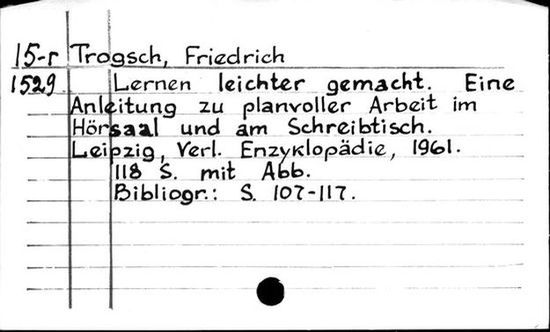 15-r Trogsch, Friedrich
1529 Lernen leichter gemacht. Eine
Anleitung zu planvoller Arbeit im
Hörsaal und am Schreibtisch.
Leipzig, Verl. Enzyklopädie, 1961.
118 S. mit Abb.
Bibliogr.: S. 107-117.